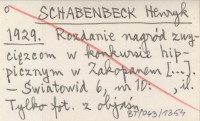 SCHABENBECK Henryk
1929. Rozdanie nagród zwy-
cięzcom w konkursie hip-
picznym w Zakopanem [...].
- Światowid 6, nr 10: , il.
Tylko fot. z objaśn.